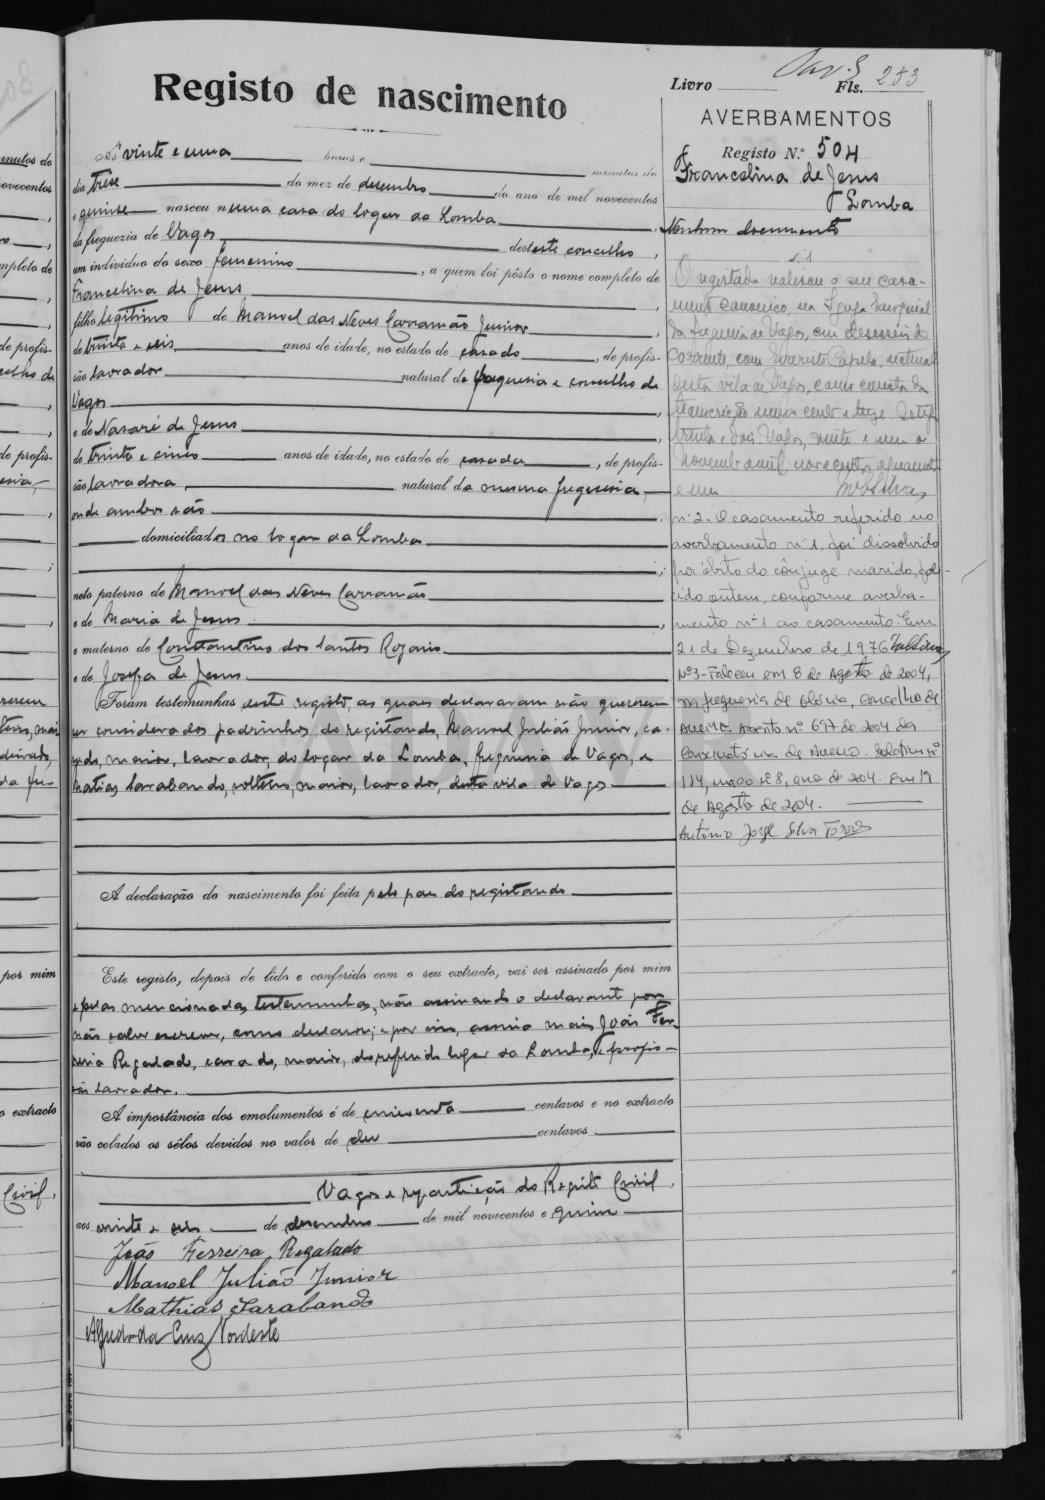 Registo de nascimento
Livro Fls. 253
AVERBAMENTOS
Registo N.º 504
Francelina de Jesus
Lomba
Nenhum documento
Ás vinte e uma horas e minutos do
dia trêse do mez de desembro do ano de mil novecentos
e quinse nasceu numa casa do logar da Lomba,
da freguezia de Vagos deste concelho,
um individuo do sexo femenino, a quem foi pôsto o nome completo de
Francelina de Jesus,
filho legitimo de Manoel das Neves Carramão Junior,
de trinta e seis anos de idade, no estado de casado, de profis-
são lavrador natural da freguesia e concelho de
Vagos,
e de Nasaré de Jesus,
de trinta e cinco anos de idade, no estado de casada, de profis-
são lavradora, natural da mesma freguesia
onde ambos são,
domiciliados no logar da Lomba
;
neto paterno de Manoel das Neves Carramão
e de Maria de Jesus,
e materno de Constantino dos Santos Rozario
e de Josefa de Jesus
Foram testemunhas deste registo, as quaes declararam não quererem
ser considerados padrinhos do registando, Manoel Julião Junior, ca-
sado, maior, lavrador, do logar da Lomba, freguesia de Vagos, e
Matias Sarabando, solteiro, maior, lavrador, desta vila de Vagos
A declaração do nascimento foi feita pelo pae do registando
Este registo, depois de lido e conferido com o seu extracto, vai ser assinado por mim
e pelas mencionadas testemunhas, não assinando o declarante por
não saber escrever, como declarou; e por isso, assina mais João Fer-
reira Regalado, casado, maior, do referido logar da Lomba, e profis-
são lavrador.
A importância dos emolumentos é de cincoenta centavos e no extracto
vão colados os sêlos devidos no valor de dez centavos
Vagos e repartição do Registo Civil,
aos vinte e seis de desembro de mil novecentos e quinse
João Ferreira Regalado
Manoel Julião Junior
Mathias Sarabando
Alfredo da Cruz Nordeste
nº 1
O registado realizou o seu casa-
mento canonico, na Igreja Paroquial
da freguesia de Vagos, em desesseis do
corrente, com Evaristo Capela, natural
desta vila de Vagos, como consta da
transcrição numero cento e treze.
trinta e dois Vagos, vinte e um de
novembro mil novecentos e quarenta
e um
nº 2 - O casamento referido no
averbamento nº 1, foi dissolvido
por óbito do cônjuge marido, fale-
cido ontem, conforme averba-
mento nº 1 ao casamento. Em
21 de Dezembro de 1976
Nº 3 - Faleceu em 8 de Agosto de 2004,
na freguesia de Glória, concelho de
Aveiro. Assento nº 697 de 2004 da
Conservatória de Aveiro. Boletim nº
114, maço nº 8, ano de 2004. Em 19
de Agosto de 2004.
António Jorge Silva Torres